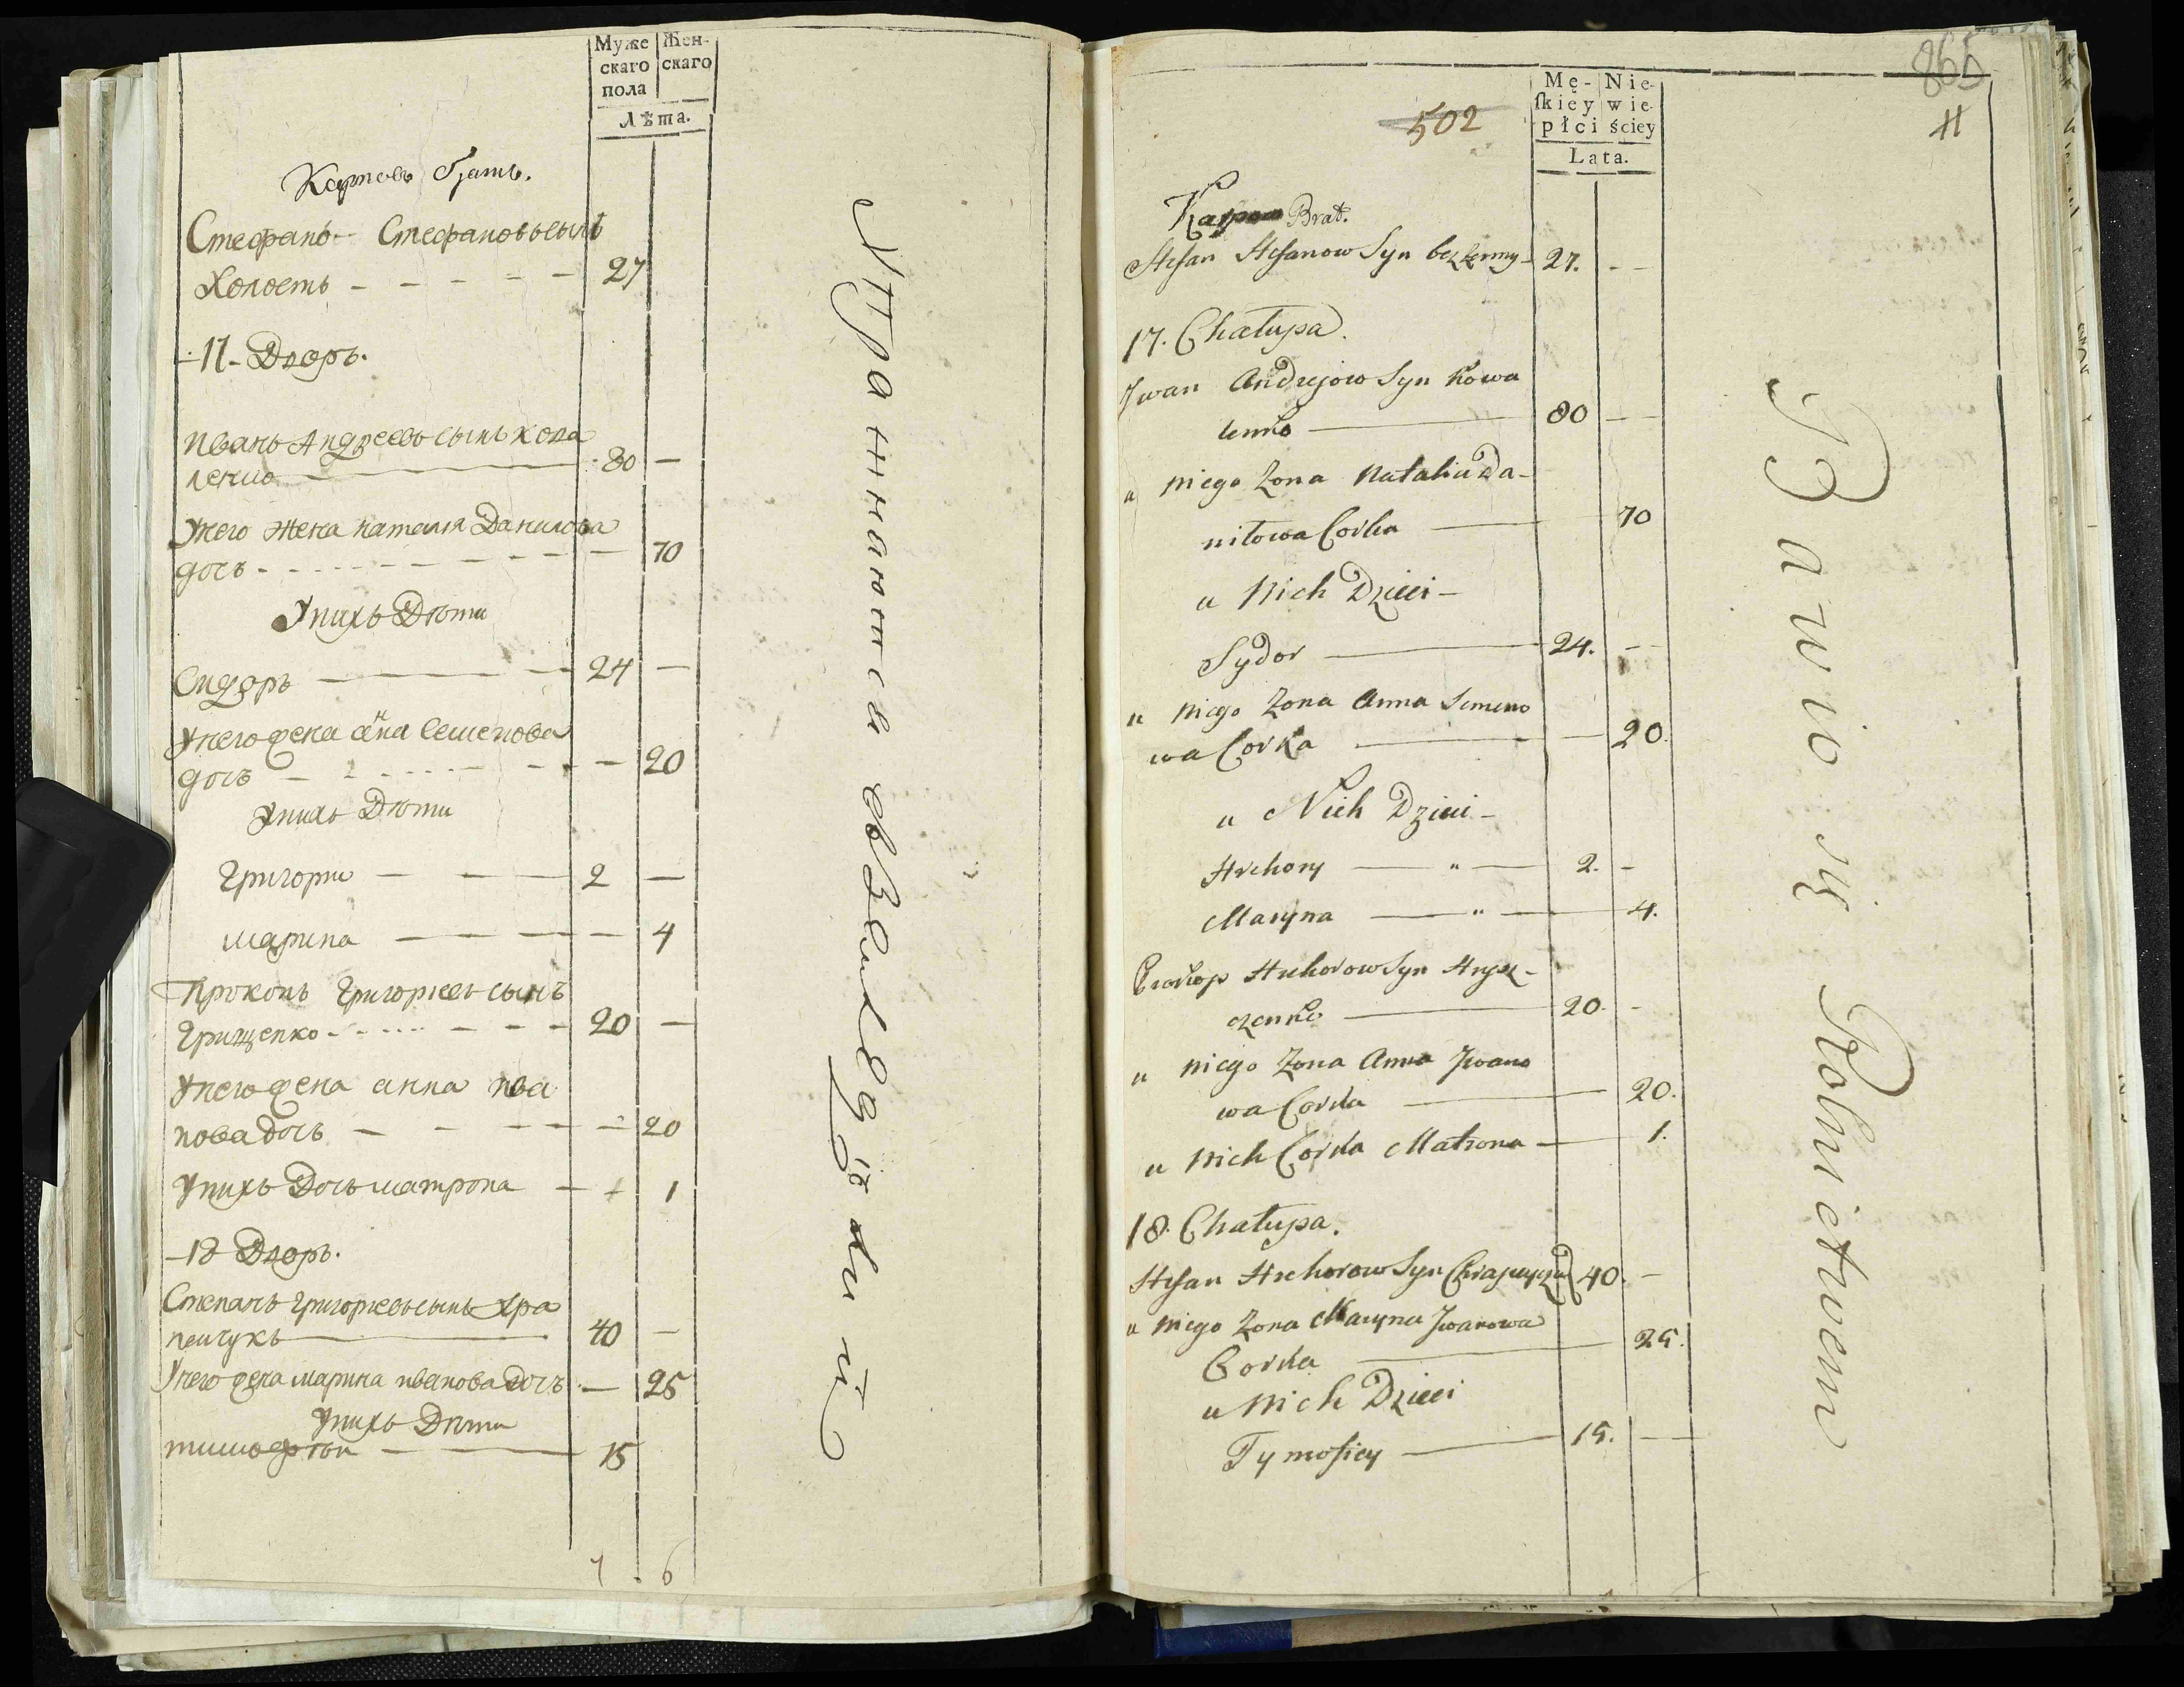 Муже Жен-
скаго скаго
пола
Лѣта.
Карповъ братъ.
Стефанъ Стефановъ сынъ
Холостъ - - - - - 27
17 Дворъ.
Иванъ Андреевъ сынъ Кова
ленко 80 —
Унего жена наталия Данилова
дочь - - - - - 70
Унихъ Дѣти
Сидоръ — 24 —
Унего жена анна Семенова
дочь - - - - - 20
Унихъ Дѣти
Григори — — — 2 —
марина — — — — 4
Прокопъ Григориевъ сынъ
Грищенко - - - - - 20 —
Унего жена анна ива
нова дочь — - — — — 20
Унихъ Дочь матрона — 1
18 Дворъ.
Степанъ григориевъ сынъ Хра
пайчукъ 40 —
Унего жена марина иванова дочь — 25
Унихъ Дѣти
тимофѣй — — 15
7 . 6
Упражняются въ Земледѣлии
865
502
Mę- Nie-
ſkiey wie-
płci ściey
Lata.
11
Karpow Brat.
Stefan Stefanow Syn bezżenny 27. - -
17. Chałupa.
Jwan Andrejow Syn Kowa
lenko — 80 —
u niego Żona Natalia Da-
niłowa Corka — 70
u Nich Dzieci —
Sydor — 24. - -
u niego Żona Anna Semeno
wa Corka — — 20.
u Nich Dzieci -
Hrehory — " — 2. -
Maryna — " — 4.
Prokop Hrehorow Syn Hrysz-
czenko — 20. -
u niego Żona Anna Jwano
wa Corka — 20.
u nich Corka Matrona — 1.
18. Chałupa.
Stefan Hrehorow Syn 40. -
u niego Żona Maryna Jwanowa
Corka — 25.
u nich Dzieci
Tymofiey — 15. —
Bawio się Rolnictwem